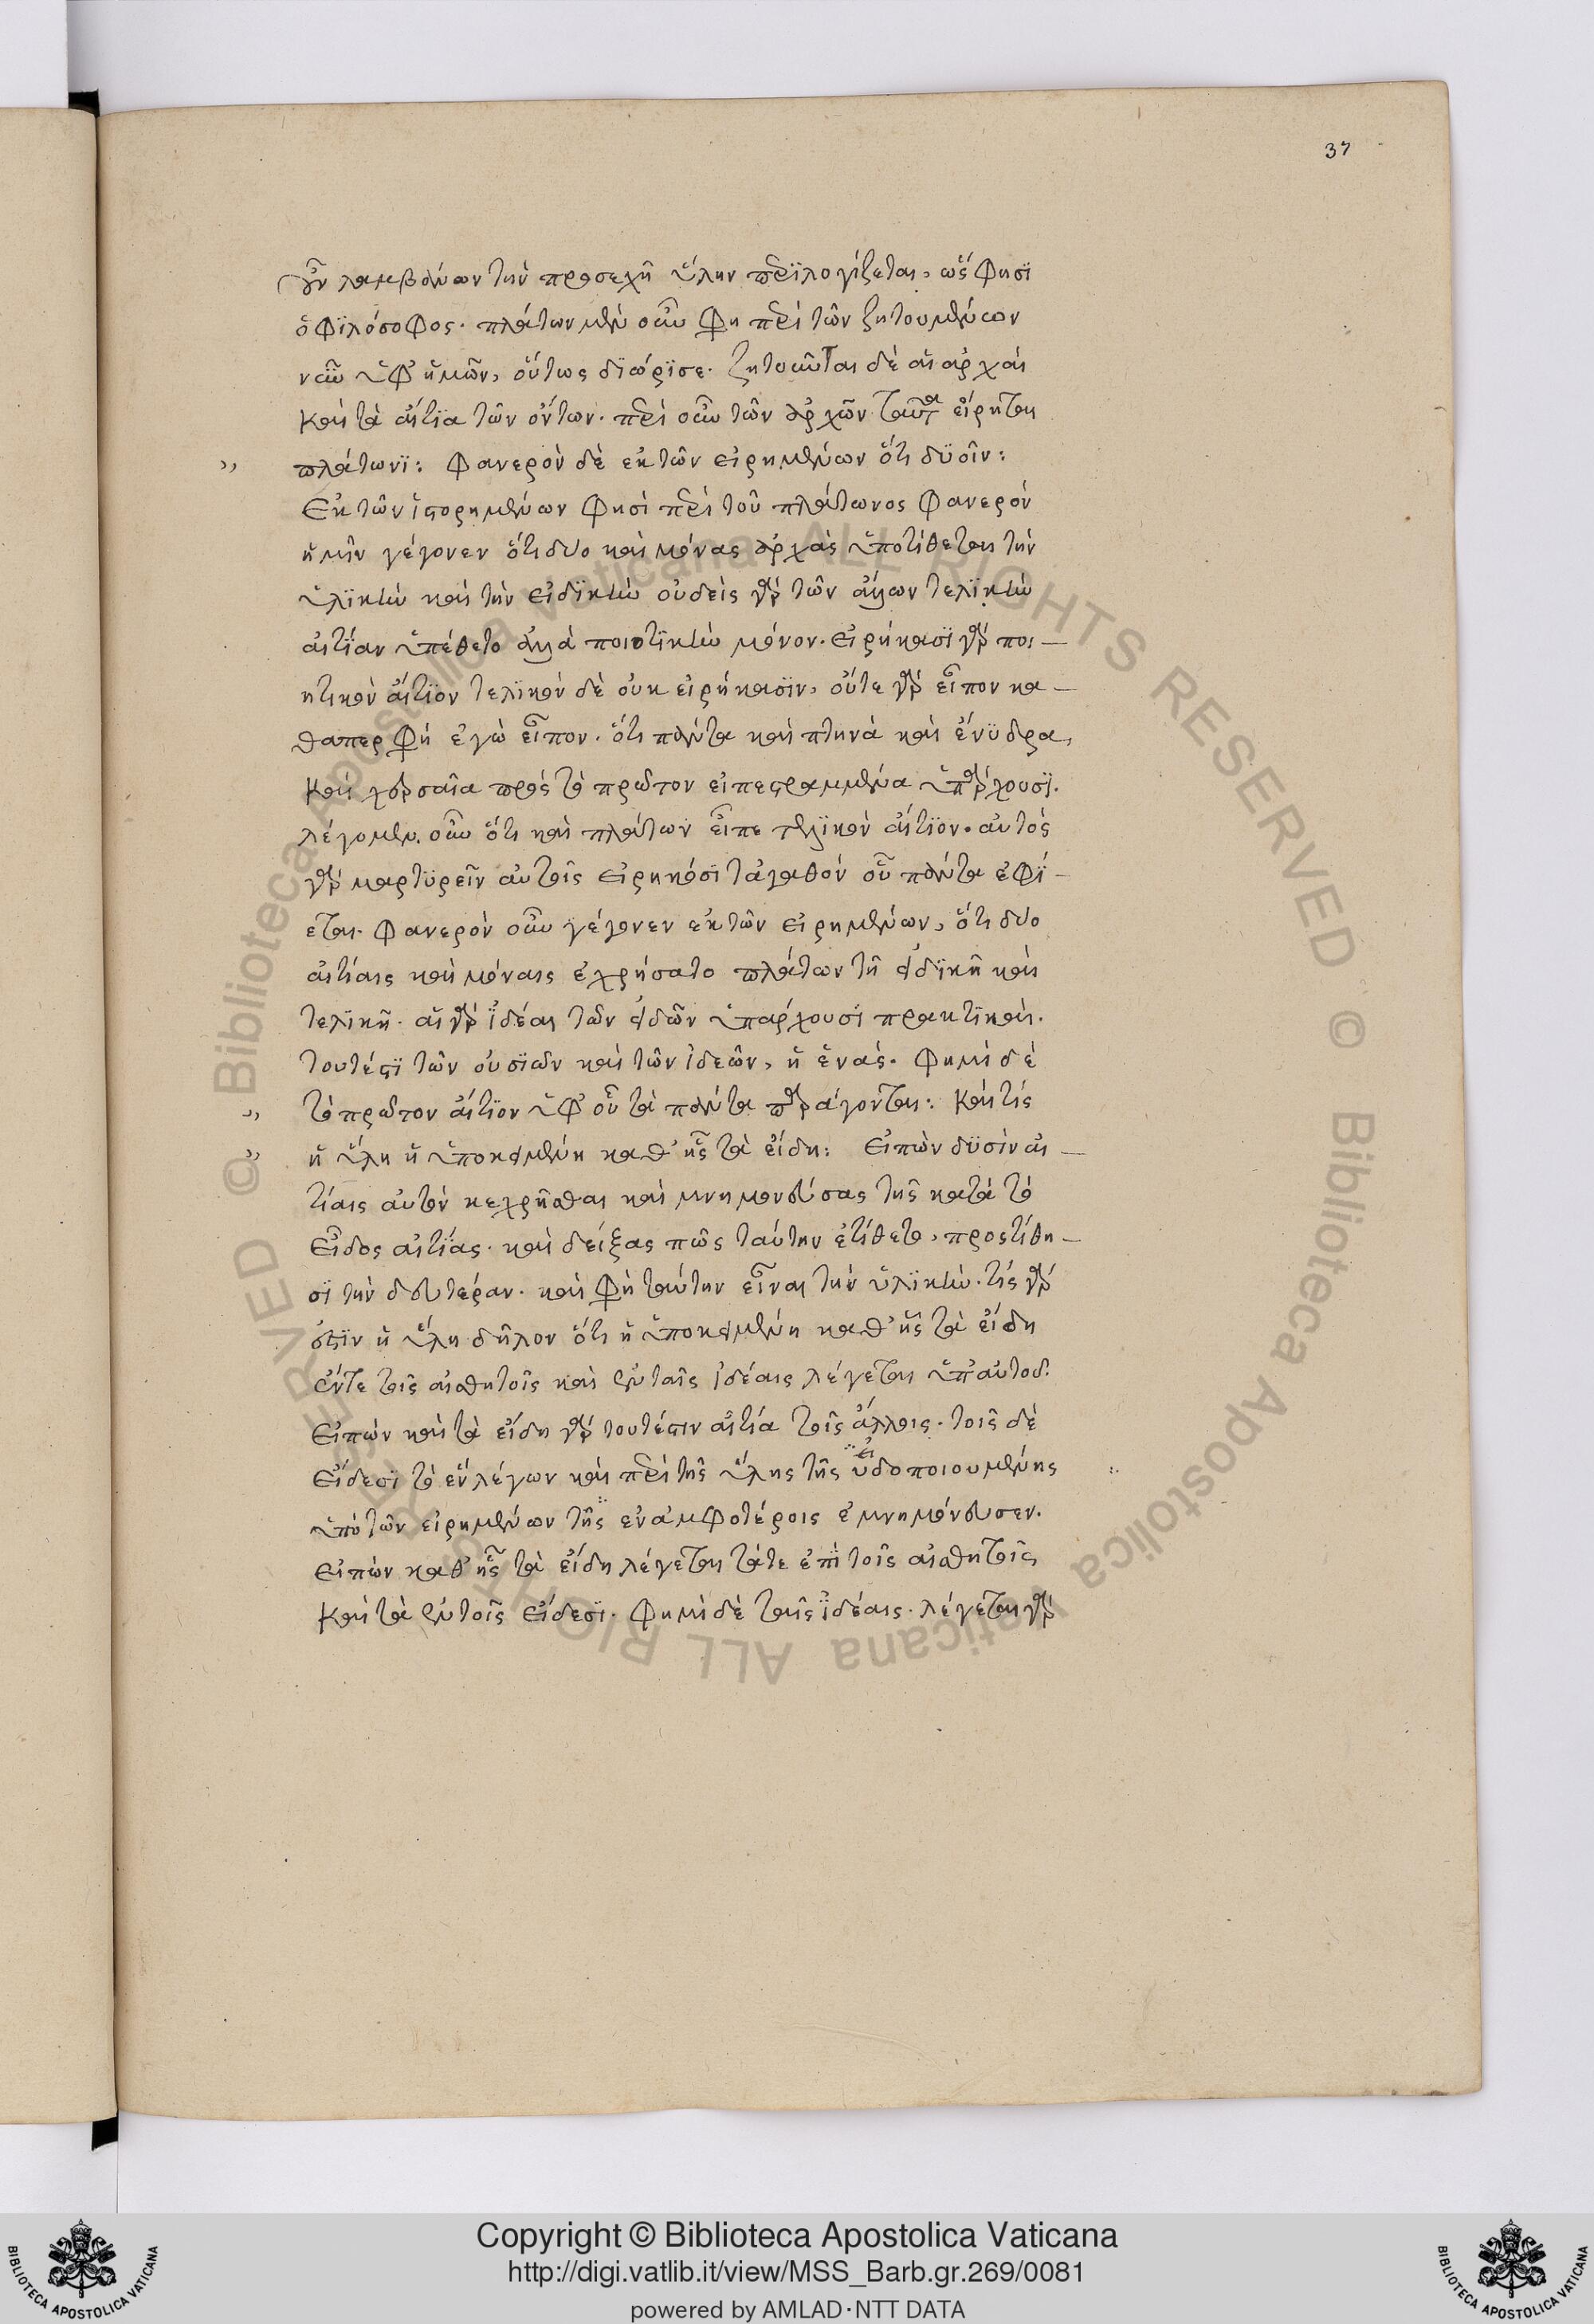 37
οὖν λαμβάνων τὴν προσεχῆ ὕλην περιλογίζεται, ὥς φησϊ
ὁ φϊλόσοφος· πλάτων μὲν οὖν φη περὶ τῶν ζητουμένων
νῦν ὑφ' ἡμῶν, οὕτως διώρϊσε· ζητοῦνται δὲ αἱ ἀρχαὶ
καὶ τὰ αἴτϊα τῶν ὄντων· περὶ οὖν τῶν ἀρχῶν ταῦτα εἴρηται
πλάτωνϊ: φανερὸν δὲ ἐκ τῶν εἰρημένων ὅτι δϋοῖν:
Ἐκ τῶν ἱστορημένων φησὶ περὶ τοῦ πλάτωνος φανερὸν
ἡμῖν γέγονεν ὅτι δύο καὶ μόνας ἀρχὰς ὑποτίθεται τὴν
ὑλϊκὴν καὶ τὴν εἰδϊκὴν οὐδεὶς γὰρ τῶν ἄλλων τελϊκὴν
αἰτίαν ὑπέθετο ἀλλὰ ποιοτϊκὴν μόνον· εἰρήκασϊ γὰρ ποι–
ητικὸν αἴτϊον τελϊκὸν δὲ οὐκ εἰρήκασϊν, οὔτε γὰρ εἶπον κα–
θαπερ φὴ ἐγὼ εἶπον· ὅτι πάντα καὶ πτηνὰ καὶ ἔνϋδρα,
καὶ χερσαῖα πρὸς τὸ πρῶτον ἐπεστραμμένα ὑπάρχουσϊ.
λέγομεν οὖν ὅτι καὶ πλάτων εἶπε τελϊκὸν αἴτϊον· αὐτὸς
γὰρ μαρτϋρεῖν αὐτοῖς εἰρηκόσϊ τἀγαθὸν οὗ πάντα ἐφί–
εται· φανερὸν οὖν γέγονεν ἐκ τῶν εἰρημένων, ὅτι δύο
αἰτίαις καὶ μόναις ἐχρήσατο πλάτων τῇ εἰδϊκῇ καὶ
τελϊκῇ· αἱ γὰρ ἰδέαι τῶν εἰδῶν ὑπάρχουσϊ πρακτϊκαὶ.
τουτέστϊ τῶν οὐσϊῶν καὶ τῶν ἰδεῶν, ἡ ἑνάς· φημὶ δὲ
τὸ πρῶτον αἴτϊον ὑφ' οὗ τὰ πάντα παράγονται: καὶ τίς
ἡ ὕλη ἡ ὑποκειμένη καθ' ἧς τὰ εἴδη: Εἰπὼν δϋσὶν αἰ–
τίαις αὐτὸν κεχρῆσθαι καὶ μνημονεύσας τῆς κατὰ τὸ
εἶδος αἰτίας· καὶ δείξας πῶς ταύτην ἐτίθετο, προστίθη–
σϊ τὴν δευτέραν· καὶ φὴ ταύτην εἶναι τὴν ὑλϊκὴν· τίς γὰρ
ἐστϊν ἡ ὕλη δῆλον ὅτι ἡ ὑποκειμένη καθ' ἧς τὰ εἴδη
ἔντε τοῖς αἰσθητοῖς καὶ ἐν ταῖς ἰδέαις λέγεται ὑπ' αὐτοῦ·
Εἰπὼν καὶ τὰ εἴδη γὰρ τουτέστιν αἰτία τοῖς ἄλλοις· τοῖς δὲ
εἴδεσϊ τὸ ἓν λέγων καὶ περὶ τῆς ὕλης τῆς ὑδοποιουμένης
ὑπὸ τῶν εἰρημένων τῆς ἐν ἀμφοτέροις ἐμνημόνευσεν.
εἰπὼν καθ' ἧς τὰ εἴδη λέγεται τάτε ἐπὶ τοῖς αἰσθητοῖς
καὶ τὰ ἐν τοῖς εἴδεσϊ· φημὶ δὲ ταῖς ἰδέαις· λέγεται γὰρ
Copyright © Biblioteca Apostolica Vaticana
http://digi.vatlib.it/view/MSS_Barb.gr.269/0081
powered by AMLAD·NTT DATA